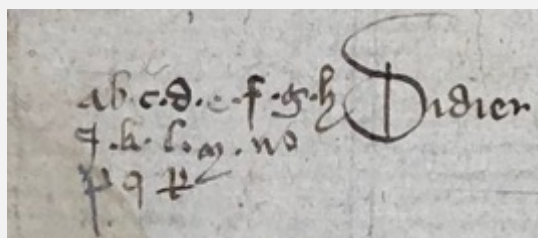 ab.c.d.e.f.g.h Didier
q.k.l.m.no
p q